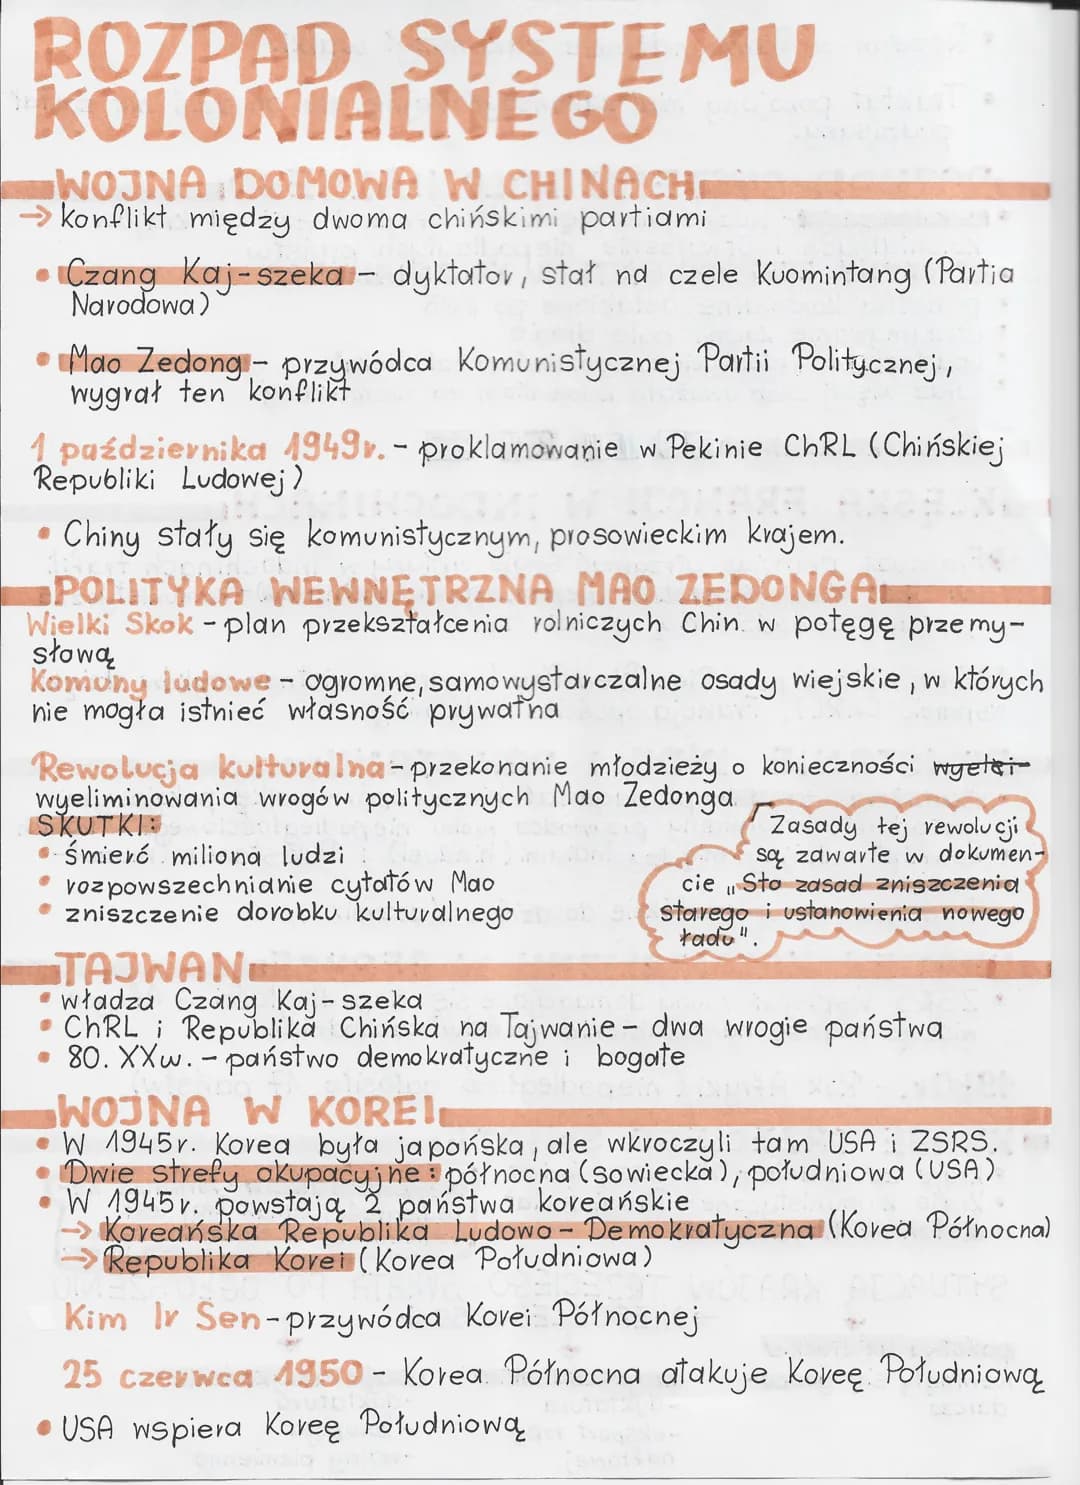 ROZPAD SYSTEMU
KOLONIALNEGO
WOJNA DOMOWA W CHINACH
→ konflikt między dwoma chińskimi partiami
• Czang Kaj-szeka – dyktator, stał na czele Kuomintang (Partia
Narodowa)
• Mao Zedong – przywódca Komunistycznej Partii Politycznej,
wygrał ten konflikt
1 października 1949r. – proklamowanie w Pekinie ChRL (Chińskiej
Republiki Ludowej)
• Chiny stały się komunistycznym, prosowieckim krajem.
POLITYKA WEWNĘTRZNA MAO ZEDONGA
Wielki Skok – plan przekształcenia rolniczych Chin w potęgę przemy-
słową
Komuny ludowe – ogromne, samowystarczalne osady wiejskie, w których
nie mogła istnieć własność prywatna
Rewolucja kulturalna – przekonanie młodzieży o konieczności
wyeliminowania wrogów politycznych Mao Zedonga
SKUTKI:
• śmierć miliona ludzi
• rozpowszechnianie cytatów Mao
• zniszczenie dorobku kulturalnego
Zasady tej rewolucji
są zawarte w dokumen-
cie „Sto zasad zniszczenia
starego i ustanowienia nowego
ładu".
TAJWAN
• władza Czang Kaj-szeka
• ChRL i Republika Chińska na Tajwanie – dwa wrogie państwa
• 80. XXw. – państwo demokratyczne i bogate
WOJNA W KOREI
• W 1945r. Korea była japońska, ale wkroczyli tam USA i ZSRS.
• Dwie strefy okupacyjne: północna (sowiecka), południowa (USA)
• W 1945r. powstają 2 państwa koreańskie
→ Koreańska Republika Ludowo-Demokratyczna (Korea Północna)
→ Republika Korei (Korea Południowa)
Kim Ir Sen – przywódca Korei Północnej
25 czerwca 1950 – Korea Północna atakuje Koreę Południową
• USA wspiera Koreę Południową